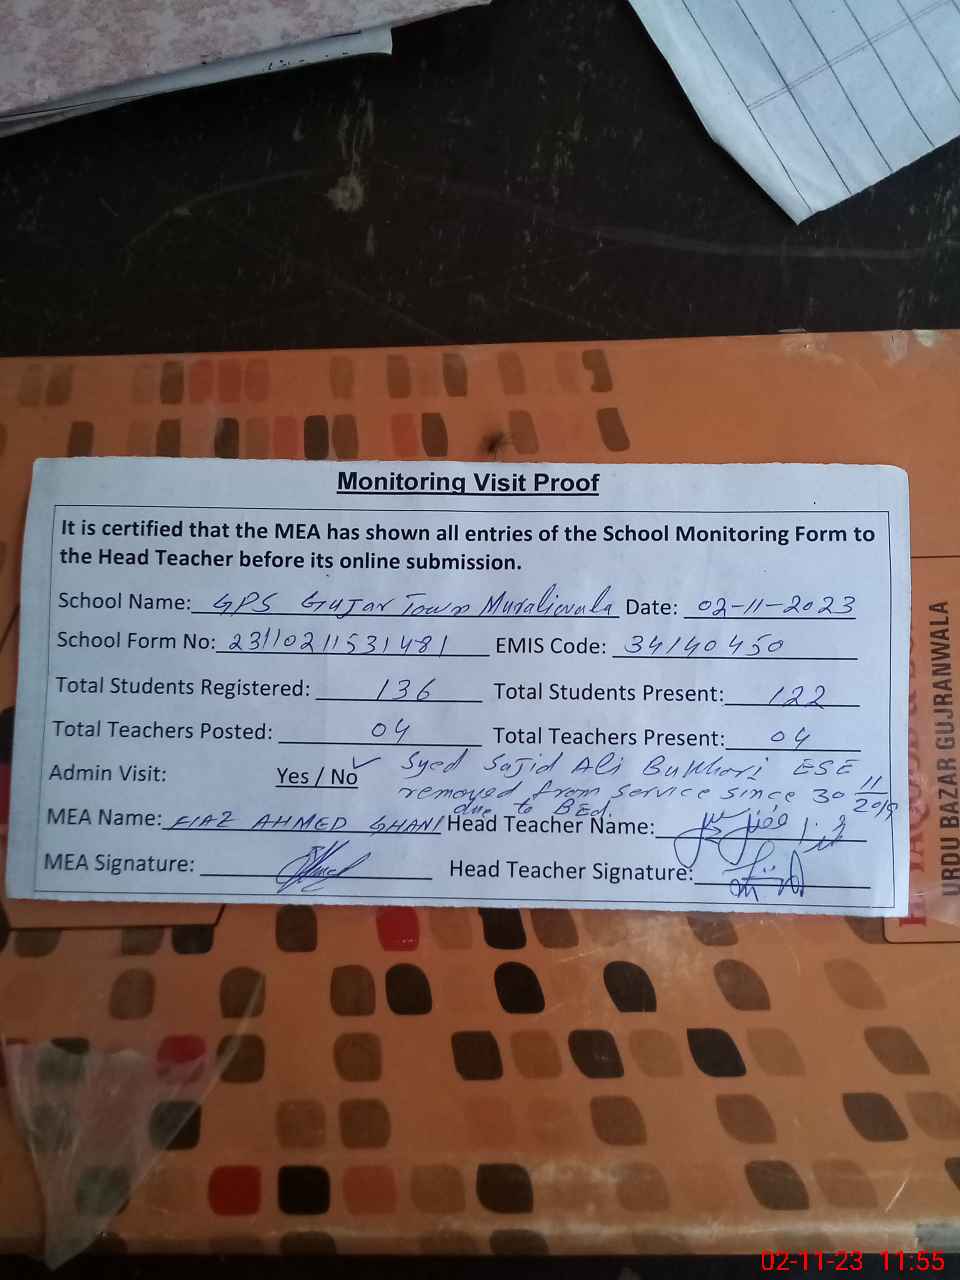 Monitoring Visit Proof
It is certified that the MEA has shown all entries of the School Monitoring Form to
the Head Teacher before its online submission.
School Name: GPS Gujar Town Muraliwala Date: 02-11-2023
School Form No: 23110211531481 EMIS Code: 34140450
Total Students Registered: 136 Total Students Present: 122
Total Teachers Posted: 04 Total Teachers Present: 04
Admin Visit: Yes / No ✓ Syed Sajid Ali Bukhari ESE
removed from service since 30 11/2019
due to BEd.
MEA Name: FIAZ AHMED GHANI Head Teacher Name:
MEA Signature: Head Teacher Signature:
URDU BAZAR GUJRANWALA
02-11-23 11:55